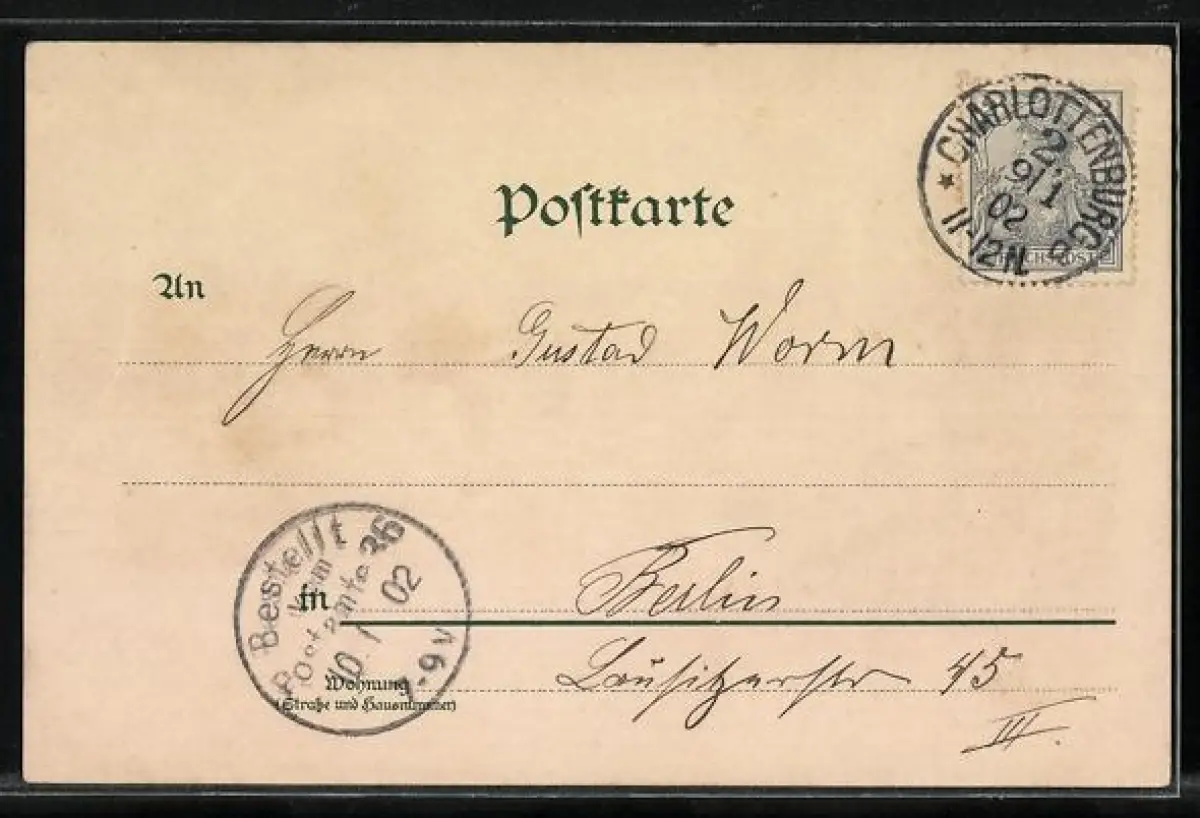 Postkarte
CHARLOTTENBURG
* 2 a
9/1
02
11-12N.
REICHSPOST
An
Herrn Gustav Worm
in Berlin
Bestellt
vom
Postamte 36
10/1 02
-9V
Wohnung
(Straße und Hausnummer)
Lausitzerstr 45
III.